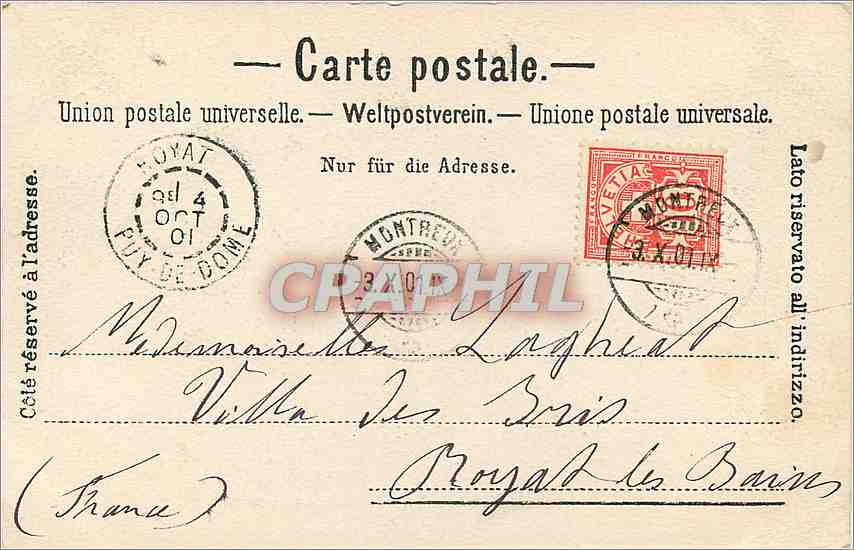 Carte postale.
Union postale universelle. — Weltpostverein. — Unione postale universale.
Nur für die Adresse.
Côté réservé à l'adresse.
Lato riservato all' indirizzo.
ROYAT
4
OCT
01
PUY-DE-DOME
MONTREUX
3.X.01.IX
FRANCO
HELVETIA
10
MONTREUX
3.X.01.IX
CPAPHIL
Mesdemoiselles Lagheat
Villa des Bris
Royat les Bains
(France)